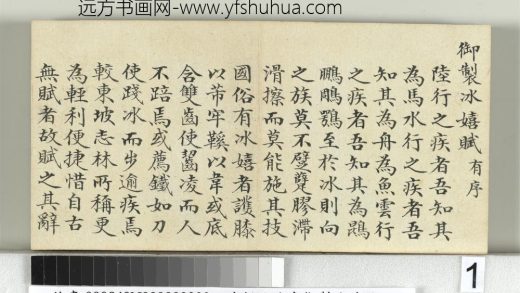 远方书画网-www.yfshuhua.com
御製冰嬉賦有序
陸行之疾者吾知其
為馬水行之疾者吾
知其為舟為魚雲行
之疾者吾知其為鵾
鵬鵰鶚至於冰則向
之族莫不躄躠膠滯
滑擦而莫能施其技
國俗有冰嬉者護膝
以芾牢鞵以韋或底
含雙齒使齧凌而人
不踣焉或薦鐵如刀
使踐冰而步逾疾焉
較東坡志林所稱更
為輕利便捷惜自古
無賦者故賦之其辭
1